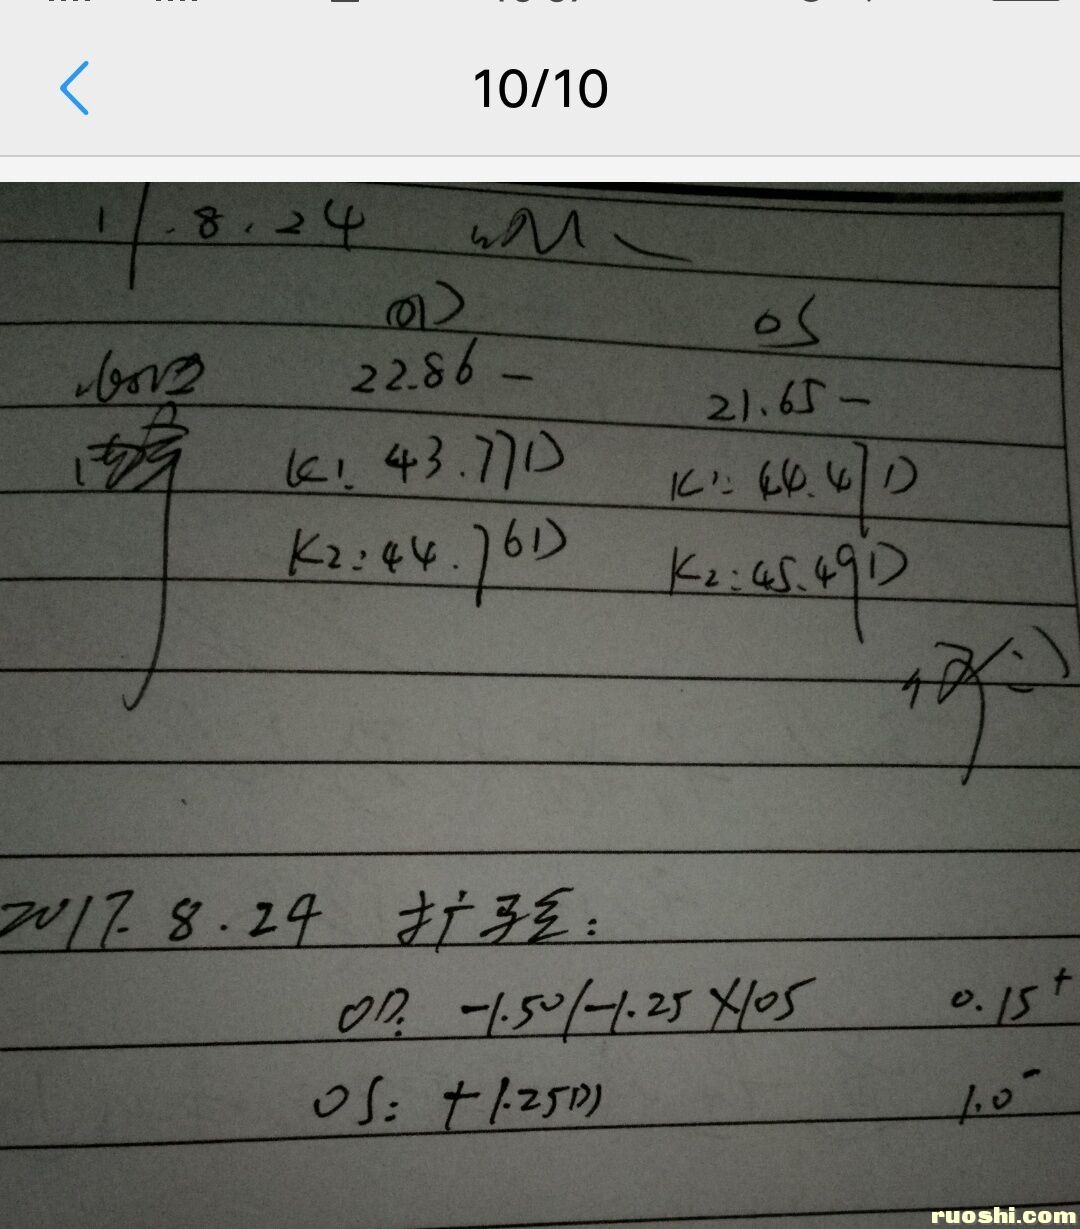 10/10
17.8.24
OD OS
22.86 - 21.65 -
K1: 43.77D K1: 44.47D
K2: 44.76D K2: 45.49D
2017.8.24 扩验:
OD: -1.50/-1.25X105 0.15+
OS: +1.25DS 1.0-
ruoshi.com